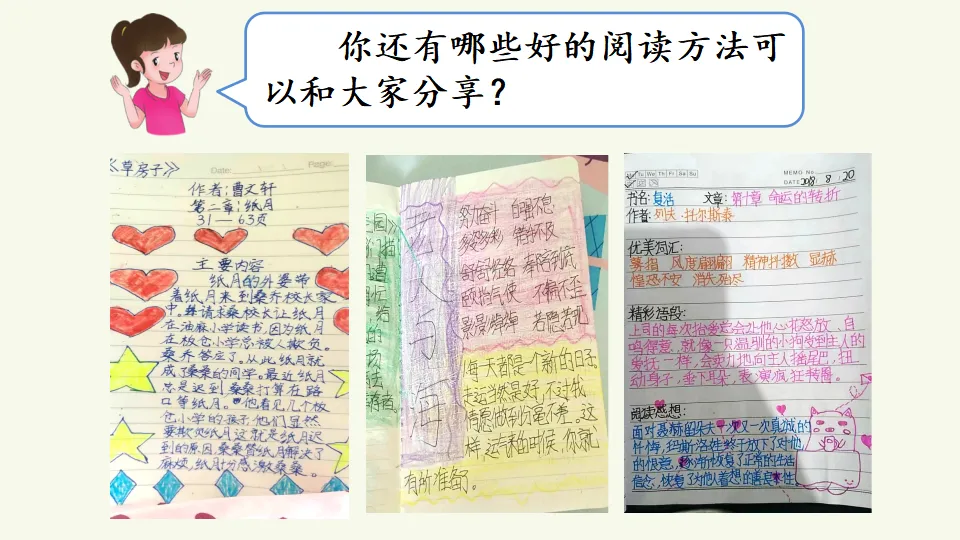 你还有哪些好的阅读方法可
以和大家分享？
《草房子》
Date:
Page:
作者:曹文轩
第二章:纸月
31—63页
主要内容
纸月的外婆带
着纸月来到桑乔校长家
中。请求桑校长让纸月
在油麻小学读书,因为纸月
在板仓小学总被人欺负。
桑乔答应了。从此纸月就
成了桑桑的同学。最近纸月
总是迟到桑桑打算在路
口等纸月。他看见几个板
仓小学的孩子,他们显然
要欺负纸月这就是纸月迟
到的原因桑桑替纸月解决了
麻烦,纸月十分感激桑桑。
老人与海
舒奋斗 自强不息
每天都是一个新的日子。
走运当然是好,不过我
情愿做到分毫不差。这
样,运来的时候,你就
有所准备了。
Tu We Th Fr Sa Su
MEMO No.
DATE 2018 . 8 . 20
书名:复活 文章:第十章 命运的转折
作者:列夫·托尔斯泰
优美词汇:
风度翩翩 精神抖擞 显赫
惶恐不安 消失殆尽
精彩语段:
上司的每次抬爱总会让他心花怒放、自
鸣得意,就像一只温驯的小狗受到主人的
爱抚一样,会卖力地向主人摇尾巴,扭
动身子,垂下耳朵,表演疯狂转圈。
阅读感想:
面对聂赫留朵夫一次又一次真诚的
忏悔,玛丝洛娃终于放下了对他
的恨意,逐渐恢复了正常的生活
信念,恢复了为他人着想的善良本性